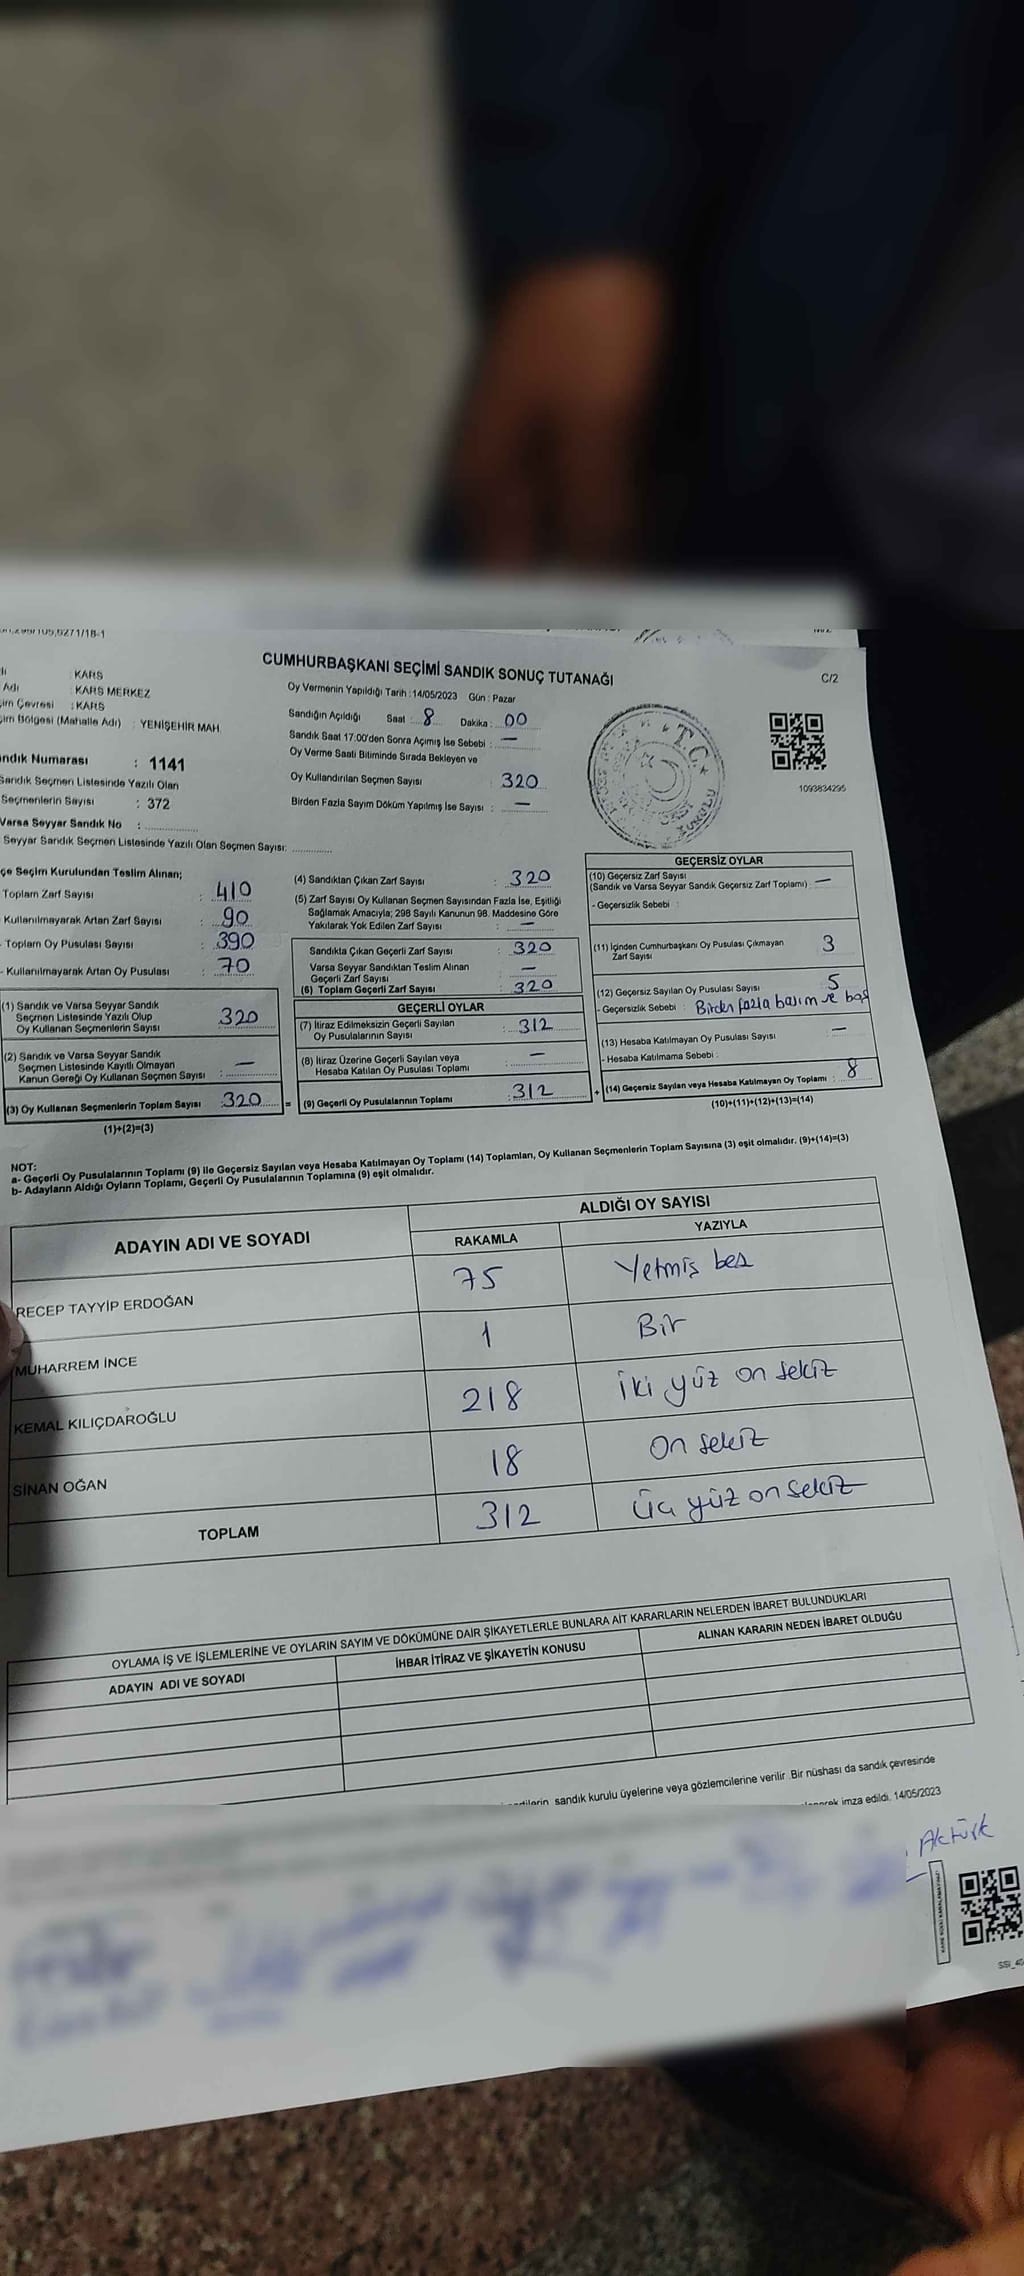 CUMHURBAŞKANI SEÇİMİ SANDIK SONUÇ TUTANAĞI
C/2
: KARS
Adı : KARS MERKEZ
Çevresi : KARS
Bölgesi (Mahalle Adı) : YENİŞEHİR MAH.
Numarası : 1141
Sandık Seçmen Listesinde Yazılı Olan
Seçmenlerin Sayısı : 372
Varsa Seyyar Sandık No :
Seyyar Sandık Seçmen Listesinde Yazılı Olan Seçmen Sayısı:
Oy Vermenin Yapıldığı Tarih : 14/05/2023 Gün : Pazar
Sandığın Açıldığı Saat : 8 Dakika : 00
Sandık Saat 17:00'den Sonra Açımış İse Sebebi : —
Oy Verme Saati Bitiminde Sırada Bekleyen ve
Oy Kullandırılan Seçmen Sayısı 320
Birden Fazla Sayım Döküm Yapılmış İse Sayısı : —
T.C.
1093834295
Seçim Kurulundan Teslim Alınan;
Toplam Zarf Sayısı : 410
Kullanılmayarak Artan Zarf Sayısı : 90
Toplam Oy Pusulası Sayısı : 390
- Kullanılmayarak Artan Oy Pusulası : 70
(1) Sandık ve Varsa Seyyar Sandık
Seçmen Listesinde Yazılı Olup
Oy Kullanan Seçmenlerin Sayısı : 320
(2) Sandık ve Varsa Seyyar Sandık
Seçmen Listesinde Kayıtlı Olmayan
Kanun Gereği Oy Kullanan Seçmen Sayısı : —
(3) Oy Kullanan Seçmenlerin Toplam Sayısı : 320
(1)+(2)=(3)
=
(4) Sandıktan Çıkan Zarf Sayısı : 320
(5) Zarf Sayısı Oy Kullanan Seçmen Sayısından Fazla İse, Eşitliği
Sağlamak Amacıyla; 298 Sayılı Kanunun 98. Maddesine Göre
Yakılarak Yok Edilen Zarf Sayısı : —
Sandıkta Çıkan Geçerli Zarf Sayısı : 320
Varsa Seyyar Sandıktan Teslim Alınan
Geçerli Zarf Sayısı : —
(6) Toplam Geçerli Zarf Sayısı : 320
GEÇERLİ OYLAR
(7) İtiraz Edilmeksizin Geçerli Sayılan
Oy Pusulalarının Sayısı : 312
(8) İtiraz Üzerine Geçerli Sayılan veya
Hesaba Katılan Oy Pusulası Toplamı : —
(9) Geçerli Oy Pusulalarının Toplamı : 312
+
GEÇERSİZ OYLAR
(10) Geçersiz Zarf Sayısı
(Sandık ve Varsa Seyyar Sandık Geçersiz Zarf Toplamı) : —
- Geçersizlik Sebebi :
(11) İçinden Cumhurbaşkanı Oy Pusulası Çıkmayan
Zarf Sayısı : 3
(12) Geçersiz Sayılan Oy Pusulası Sayısı : 5
- Geçersizlik Sebebi : Birden fazla basım ve
(13) Hesaba Katılmayan Oy Pusulası Sayısı : —
- Hesaba Katılmama Sebebi :
(14) Geçersiz Sayılan veya Hesaba Katılmayan Oy Toplamı : 8
(10)+(11)+(12)+(13)=(14)
NOT:
a- Geçerli Oy Pusulalarının Toplamı (9) ile Geçersiz Sayılan veya Hesaba Katılmayan Oy Toplamı (14) Toplamları, Oy Kullanan Seçmenlerin Toplam Sayısına (3) eşit olmalıdır. (9)+(14)=(3)
b- Adayların Aldığı Oyların Toplamı, Geçerli Oy Pusulalarının Toplamına (9) eşit olmalıdır.
ADAYIN ADI VE SOYADI
ALDIĞI OY SAYISI
RAKAMLA YAZIYLA
RECEP TAYYİP ERDOĞAN 75 Yetmiş beş
MUHARREM İNCE 1 Bir
KEMAL KILIÇDAROĞLU 218 iki yüz on sekiz
SİNAN OĞAN 18 On sekiz
TOPLAM 312 üç yüz on sekiz
OYLAMA İŞ VE İŞLEMLERİNE VE OYLARIN SAYIM VE DÖKÜMÜNE DAİR ŞİKAYETLERLE BUNLARA AİT KARARLARIN NELERDEN İBARET BULUNDUKLARI
ADAYIN ADI VE SOYADI İHBAR İTİRAZ VE ŞİKAYETİN KONUSU ALINAN KARARIN NEDEN İBARET OLDUĞU
sandık kurulu üyelerine veya gözlemcilerine verilir. Bir nüshası da sandık çevresinde
imza edildi. 14/05/2023
Aktürk